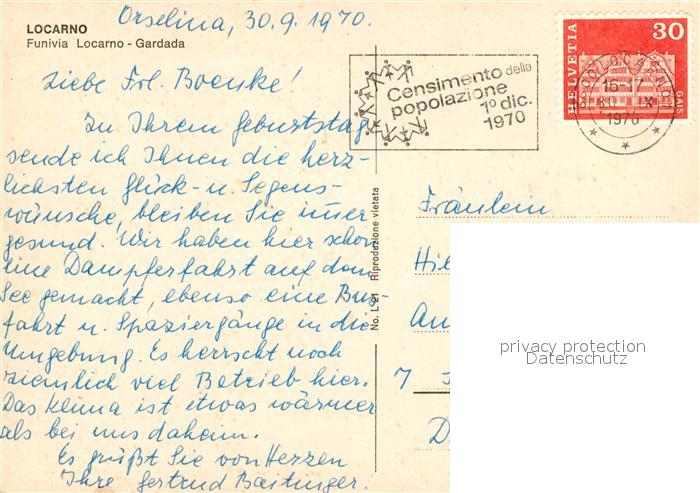 Orselina, 30.9.1970.
LOCARNO
Funivia Locarno - Gardada
Liebe Frl. Boenke!
Zu Ihrem Geburtstag
sende ich Ihnen die herz-
lichsten Glück- u. Segens-
wünsche, bleiben Sie imer
gesund. Wir haben hier schon
eine Dampferfahrt auf dem
See gemacht, ebenso eine Bus-
fahrt u. Spaziergänge in die
Umgebung. Es herrscht noch
ziemlich viel Betrieb hier.
Das Klima ist etwas wärmer
als bei uns daheim.
Es grüßt Sie von Herzen
Ihre Gertrud Baitinger.
No. L 91 Riproduzione vietata
Censimento della
popolazione
1° dic.
1970
HELVETIA
30
GAIS
LOCARNO
16-17
IX
1970
Fräulein
Hil
An
7
D
privacy protection
Datenschutz